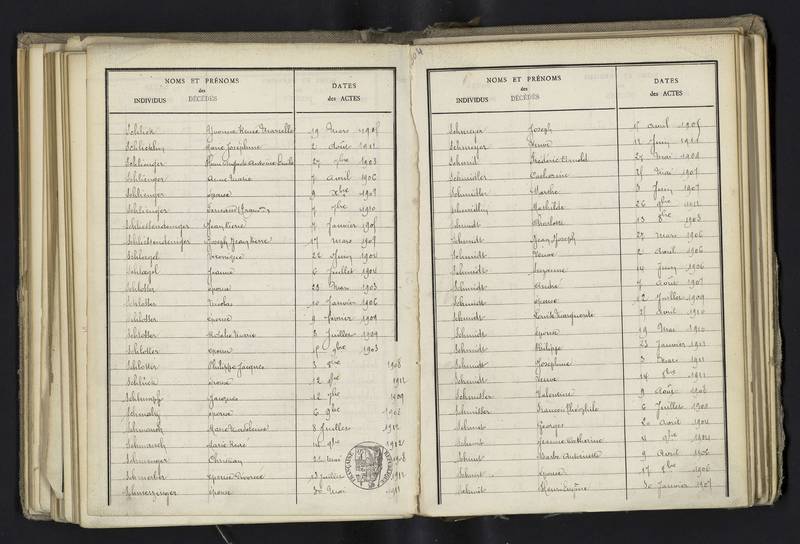 NOMS ET PRÉNOMS
des
INDIVIDUS DÉCÉDÉS
DATES
des ACTES
Schlick Yvonne Renée Marcelle 19 Mars 1905
Schlicklin Marie Joséphine 2 Août 1911
Schlienger 27 9bre 1903
Schlienger Anne Marie 7 Avril 1906
Schlienger épouse 9 Xbre 1907
Schlienger 7 9bre 1910
Schliestendeniger Jean Pierre 7 Janvier 1905
Schliestendeniger Joseph Jean Pierre 17 mars 1907
Schlegel Véronique 22 Juin 1904
Schlægel Jeanne 6 Juillet 1904
Schlotter épouse 23 Mars 1903
Schlotter Nicolas 10 Janvier 1906
Schlotter épouse 9 février 1909
Schlotter Marie 3 Juillet 1909
Schlotter épouse 9bre 1903
Schlotter Philippe Jacques 3 8bre 1908
Schlück épouse 12 1912
Schlumpf Jacques 12 1909
Schmaly épouse 6 9bre 1908
Schmauch Marie Madeleine 8 Juillet 1912
Schmauch Marie René 1902
Schmenger Christian 22 mai 1908
Schmerber épouse Divorcée 13 Juillet 1912
Schmerzinger épouse 30 Mai 1911
NOMS ET PRÉNOMS
des
INDIVIDUS DÉCÉDÉS
DATES
des ACTES
Schmeyer Joseph Avril 1905
Schmeyer Veuve 12 Juin 1911
Schmid Frédéric Arnold 27 mai 1904
Schmidler Catherine 25 Mai 1907
Schmidler Marthe 3 Juin 1907
Schmidlin Mathilde 26 1912
Schmidt Charlotte 13 8bre 1903
Schmidt Jean Joseph 27 mars 1906
Schmidt Veuve 2 Avril 1906
Schmidt Suzanne 14 Juin 1906
Schmidt André 7 Août 1907
Schmidt épouse 12 Juillet 1909
Schmidt Marguerite 21 Avril 1910
Schmidt épouse 19 Mai 1910
Schmidt Philippe 23 Janvier 1911
Schmidt Joséphine 3 Mars 1911
Schmidt Veuve 14 8bre 1911
Schmidtler Valentine 9 Août 1908
Schmidtler François Théophile 6 Juillet 1900
Schmit Georges 20 Avril 1904
Schmit Jeanne Catherine 1904
Schmit Marie Antoinette 9 Avril 1906
Schmit épouse 17 8bre 1906
Schmit Henri Eugène 30 Janvier 1907